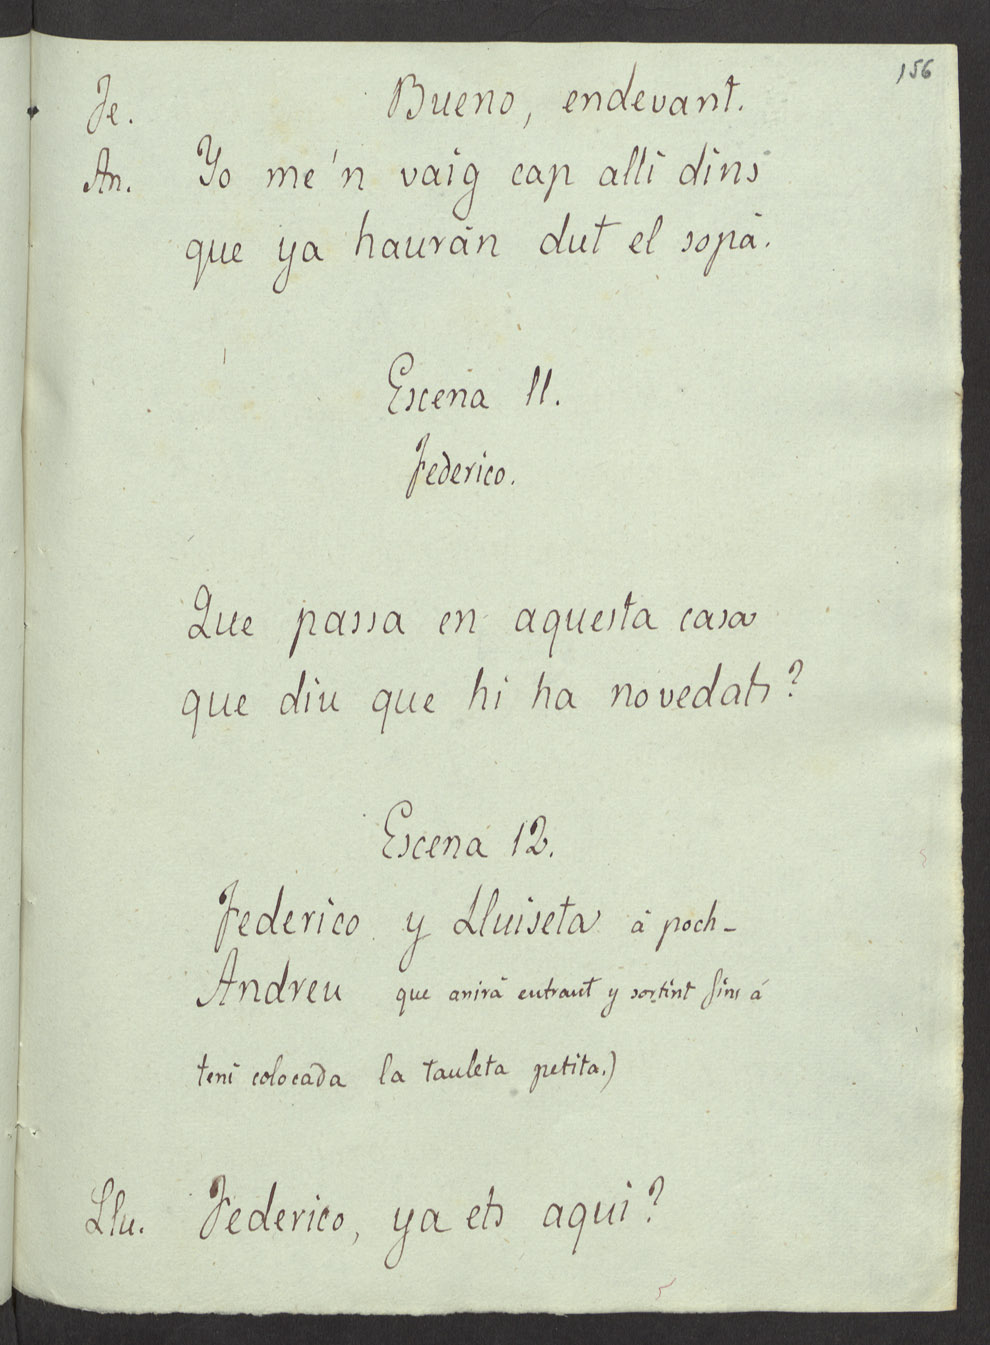 156
Fe. Bueno, endevant.
An. Yo me'n vaig cap allí dins
que ya haurán dut el sopá.
Escena 11.
Federico.
Que passa en aquesta casa
que diu que hi ha novedats?
Escena 12.
Federico y Lluiseta á poch-
Andreu que anirá entrant y sortint fins á
tení colocada la tauleta petita.)
Llu. Federico, ya ets aqui?